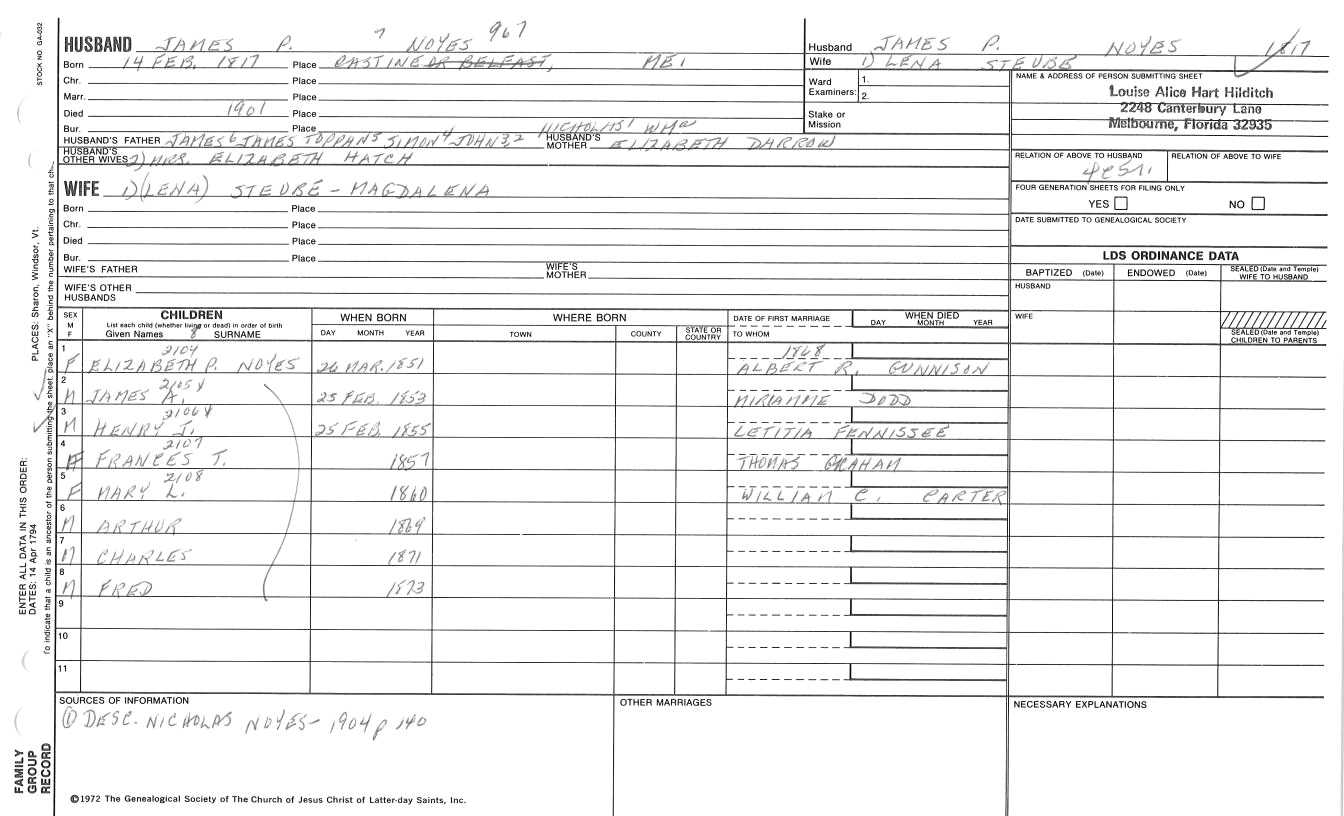 STOCK NO. GA-032
HUSBAND JAMES P. 7 NOYES 967
Born 14 FEB. 1817 Place CASTINE OR BELFAST, ME.
Chr. Place
Marr. Place
Died 1901 Place
Bur. Place
HUSBAND'S FATHER JAMES 6 JAMES TOPPAN 5 SIMON 4 JOHN 3,2 NICHOLAS 1 WM
HUSBAND'S MOTHER ELIZABETH DARROW
HUSBAND'S OTHER WIVES 2) MRS. ELIZABETH HATCH
WIFE 1) (LENA) STEUBE - MAGDALENA
Born Place
Chr. Place
Died Place
Bur. Place
WIFE'S FATHER WIFE'S MOTHER
WIFE'S OTHER HUSBANDS
Husband JAMES P. NOYES 1817
Wife 1) LENA STEUBE
Ward 1.
Examiners: 2.
Stake or Mission
NAME & ADDRESS OF PERSON SUBMITTING SHEET
Louise Alice Hart Hilditch
2248 Canterbury Lane
Melbourne, Florida 32935
RELATION OF ABOVE TO HUSBAND RELATION OF ABOVE TO WIFE
FOUR GENERATION SHEETS FOR FILING ONLY
YES NO
DATE SUBMITTED TO GENEALOGICAL SOCIETY
LDS ORDINANCE DATA
BAPTIZED (Date) ENDOWED (Date) SEALED (Date and Temple) WIFE TO HUSBAND
HUSBAND
WIFE
SEALED (Date and Temple) CHILDREN TO PARENTS
SEX M F
CHILDREN
List each child (whether living or dead) in order of birth
Given Names 8 SURNAME
WHEN BORN
DAY MONTH YEAR
WHERE BORN
TOWN COUNTY STATE OR COUNTRY
DATE OF FIRST MARRIAGE
TO WHOM
WHEN DIED
DAY MONTH YEAR
1 2104 1868
F ELIZABETH P. NOYES 26 MAR. 1851 ALBERT R. GUNNISON
2 2105
M JAMES A. 25 FEB. 1853 MIRIAMME DODD
3 2106
M HENRY J. 25 FEB. 1855 LETITIA FENNISSEE
4 2107
F FRANCES T. 1857 THOMAS GRAHAM
5 2108
F MARY L. 1860 WILLIAM C. CARTER
6
M ARTHUR 1869
7
M CHARLES 1871
8
M FRED 1873
9
10
11
SOURCES OF INFORMATION
① DESC. NICHOLAS NOYES - 1904 p 140
OTHER MARRIAGES
NECESSARY EXPLANATIONS
©1972 The Genealogical Society of The Church of Jesus Christ of Latter-day Saints, Inc.
FAMILY GROUP RECORD
ENTER ALL DATA IN THIS ORDER:
DATES: 14 Apr 1794
PLACES: Sharon, Windsor, Vt.
To indicate that a child is an ancestor of the person submitting the sheet, place an "X" behind the number pertaining to that ch